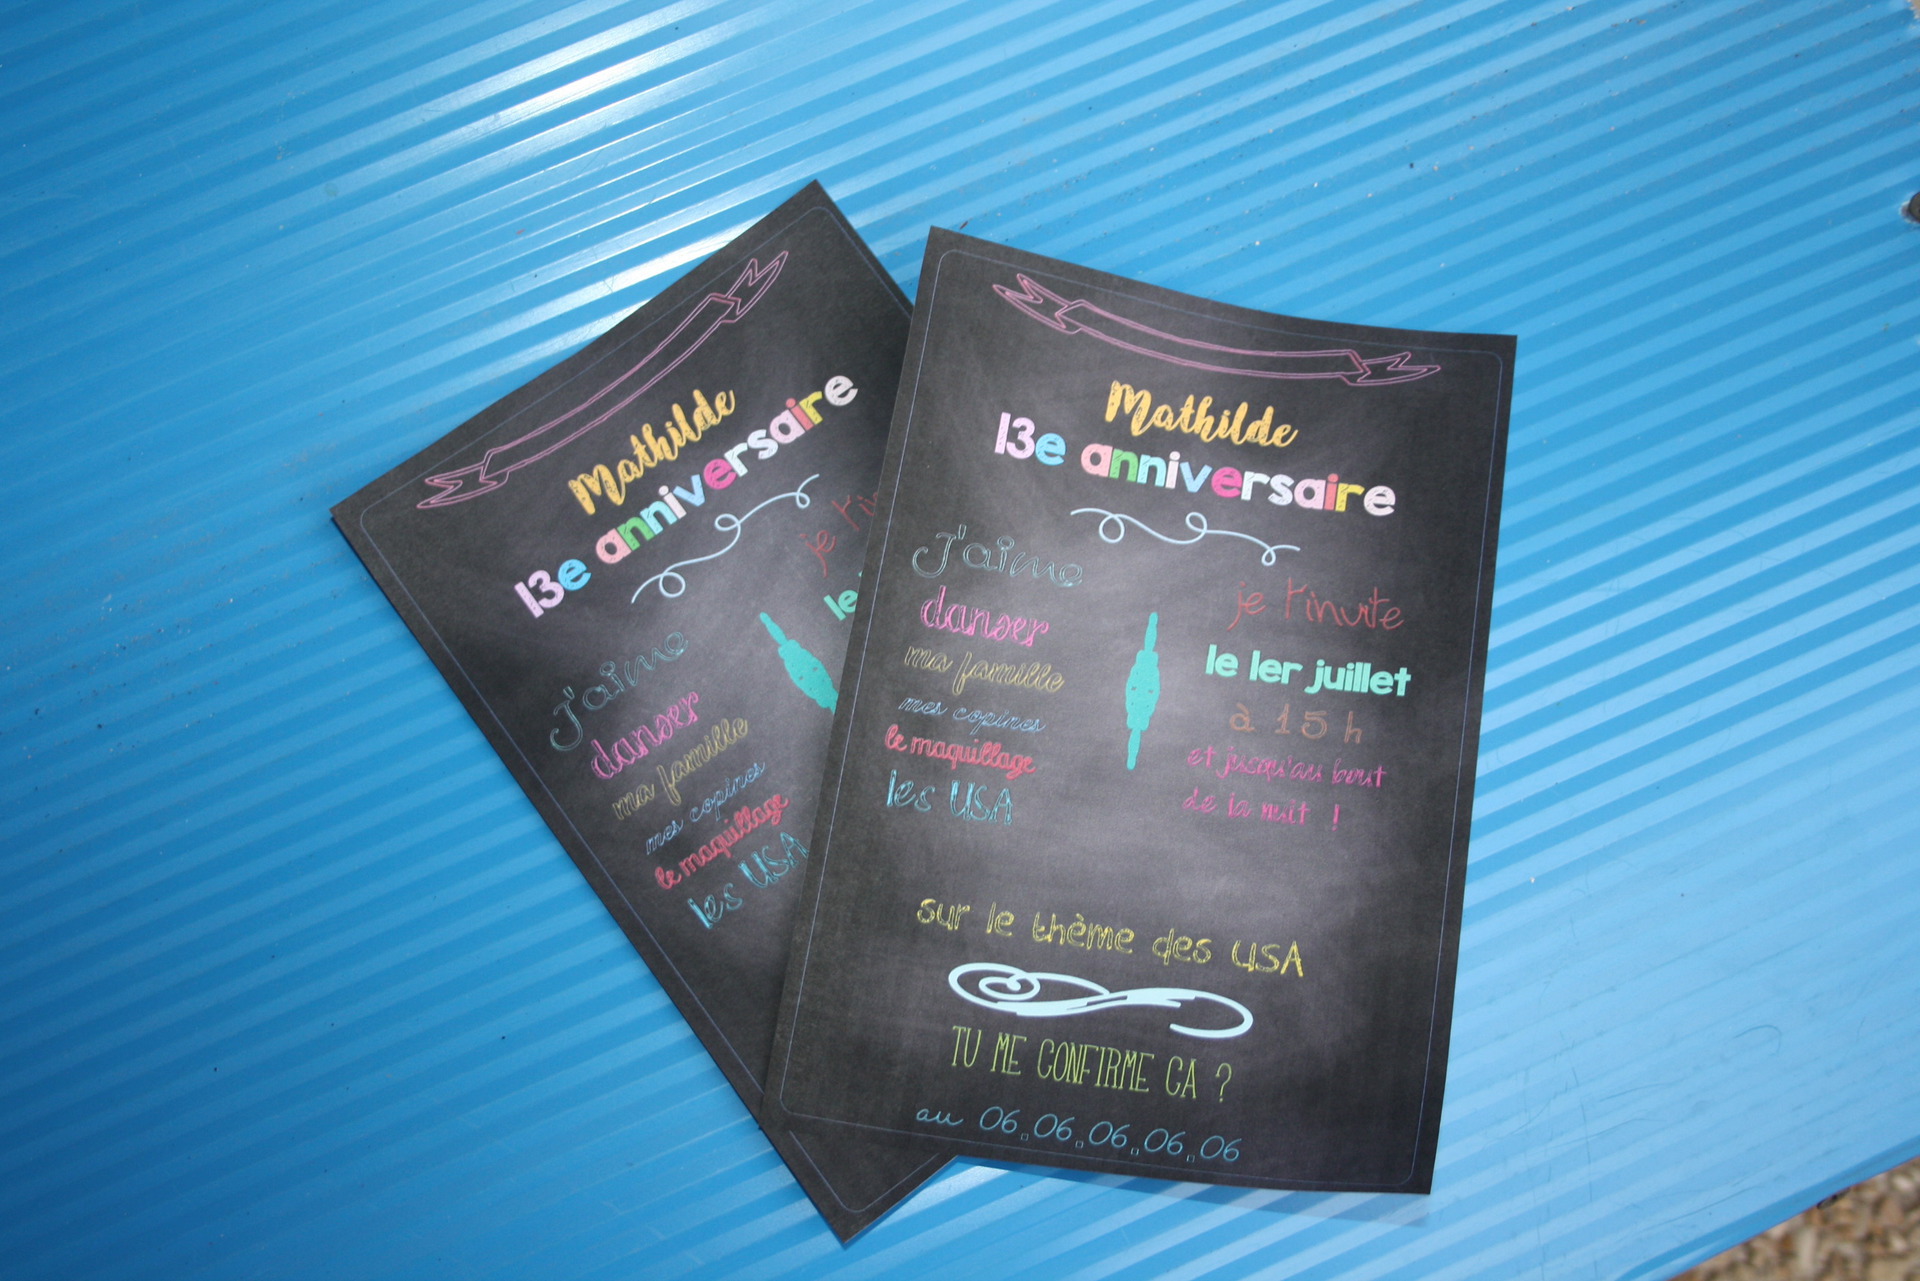 Mathilde
13e anniversaire
je t'in
le
J'aime
danser
ma famille
mes copines
le maquillage
les USA
Mathilde
13e anniversaire
J'aime
danser
ma famille
mes copines
le maquillage
les USA
je t'invite
le 1er juillet
à 15 h
et jusqu'au bout
de la nuit !
sur le thème des USA
TU ME CONFIRME CA ?
au 06.06.06.06.06